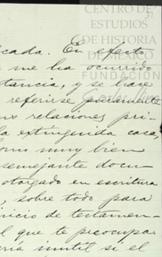 CENTRO DE
ESTUDIOS
DE HISTORIA
DE MÉXICO
FUNDACIÓN
cada. En efecto
me ha ocurrido
tancia, y se hace
referirse
relaciones
extinguida casa,
como muy bien
semejante docu-
otorgado en escritura
, sobre todo para
inicio de testamen-
el que te preocupa
inutil si el